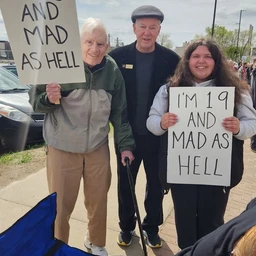 AND
MAD
AS HELL
I'M 19
AND
MAD AS
HELL